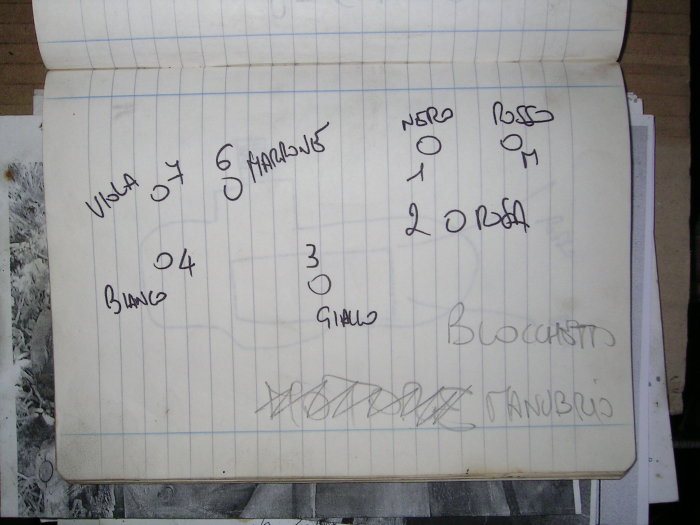 NERO ROSSO
1 M
VIOLA 7 6 MARRONE
2 ROSA
4 3
BIANCO GIALLO
BLOCCHETTO
MANUBRIO